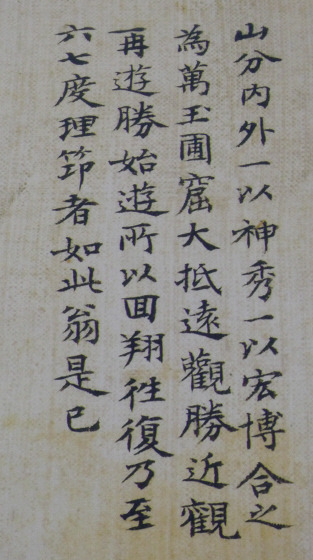 山分內外一以神秀一以宏博合之
為萬玉圃窟大抵遠觀勝近觀
再遊勝始遊所以回翔徃復乃至
六七度理笻者如此翁是已